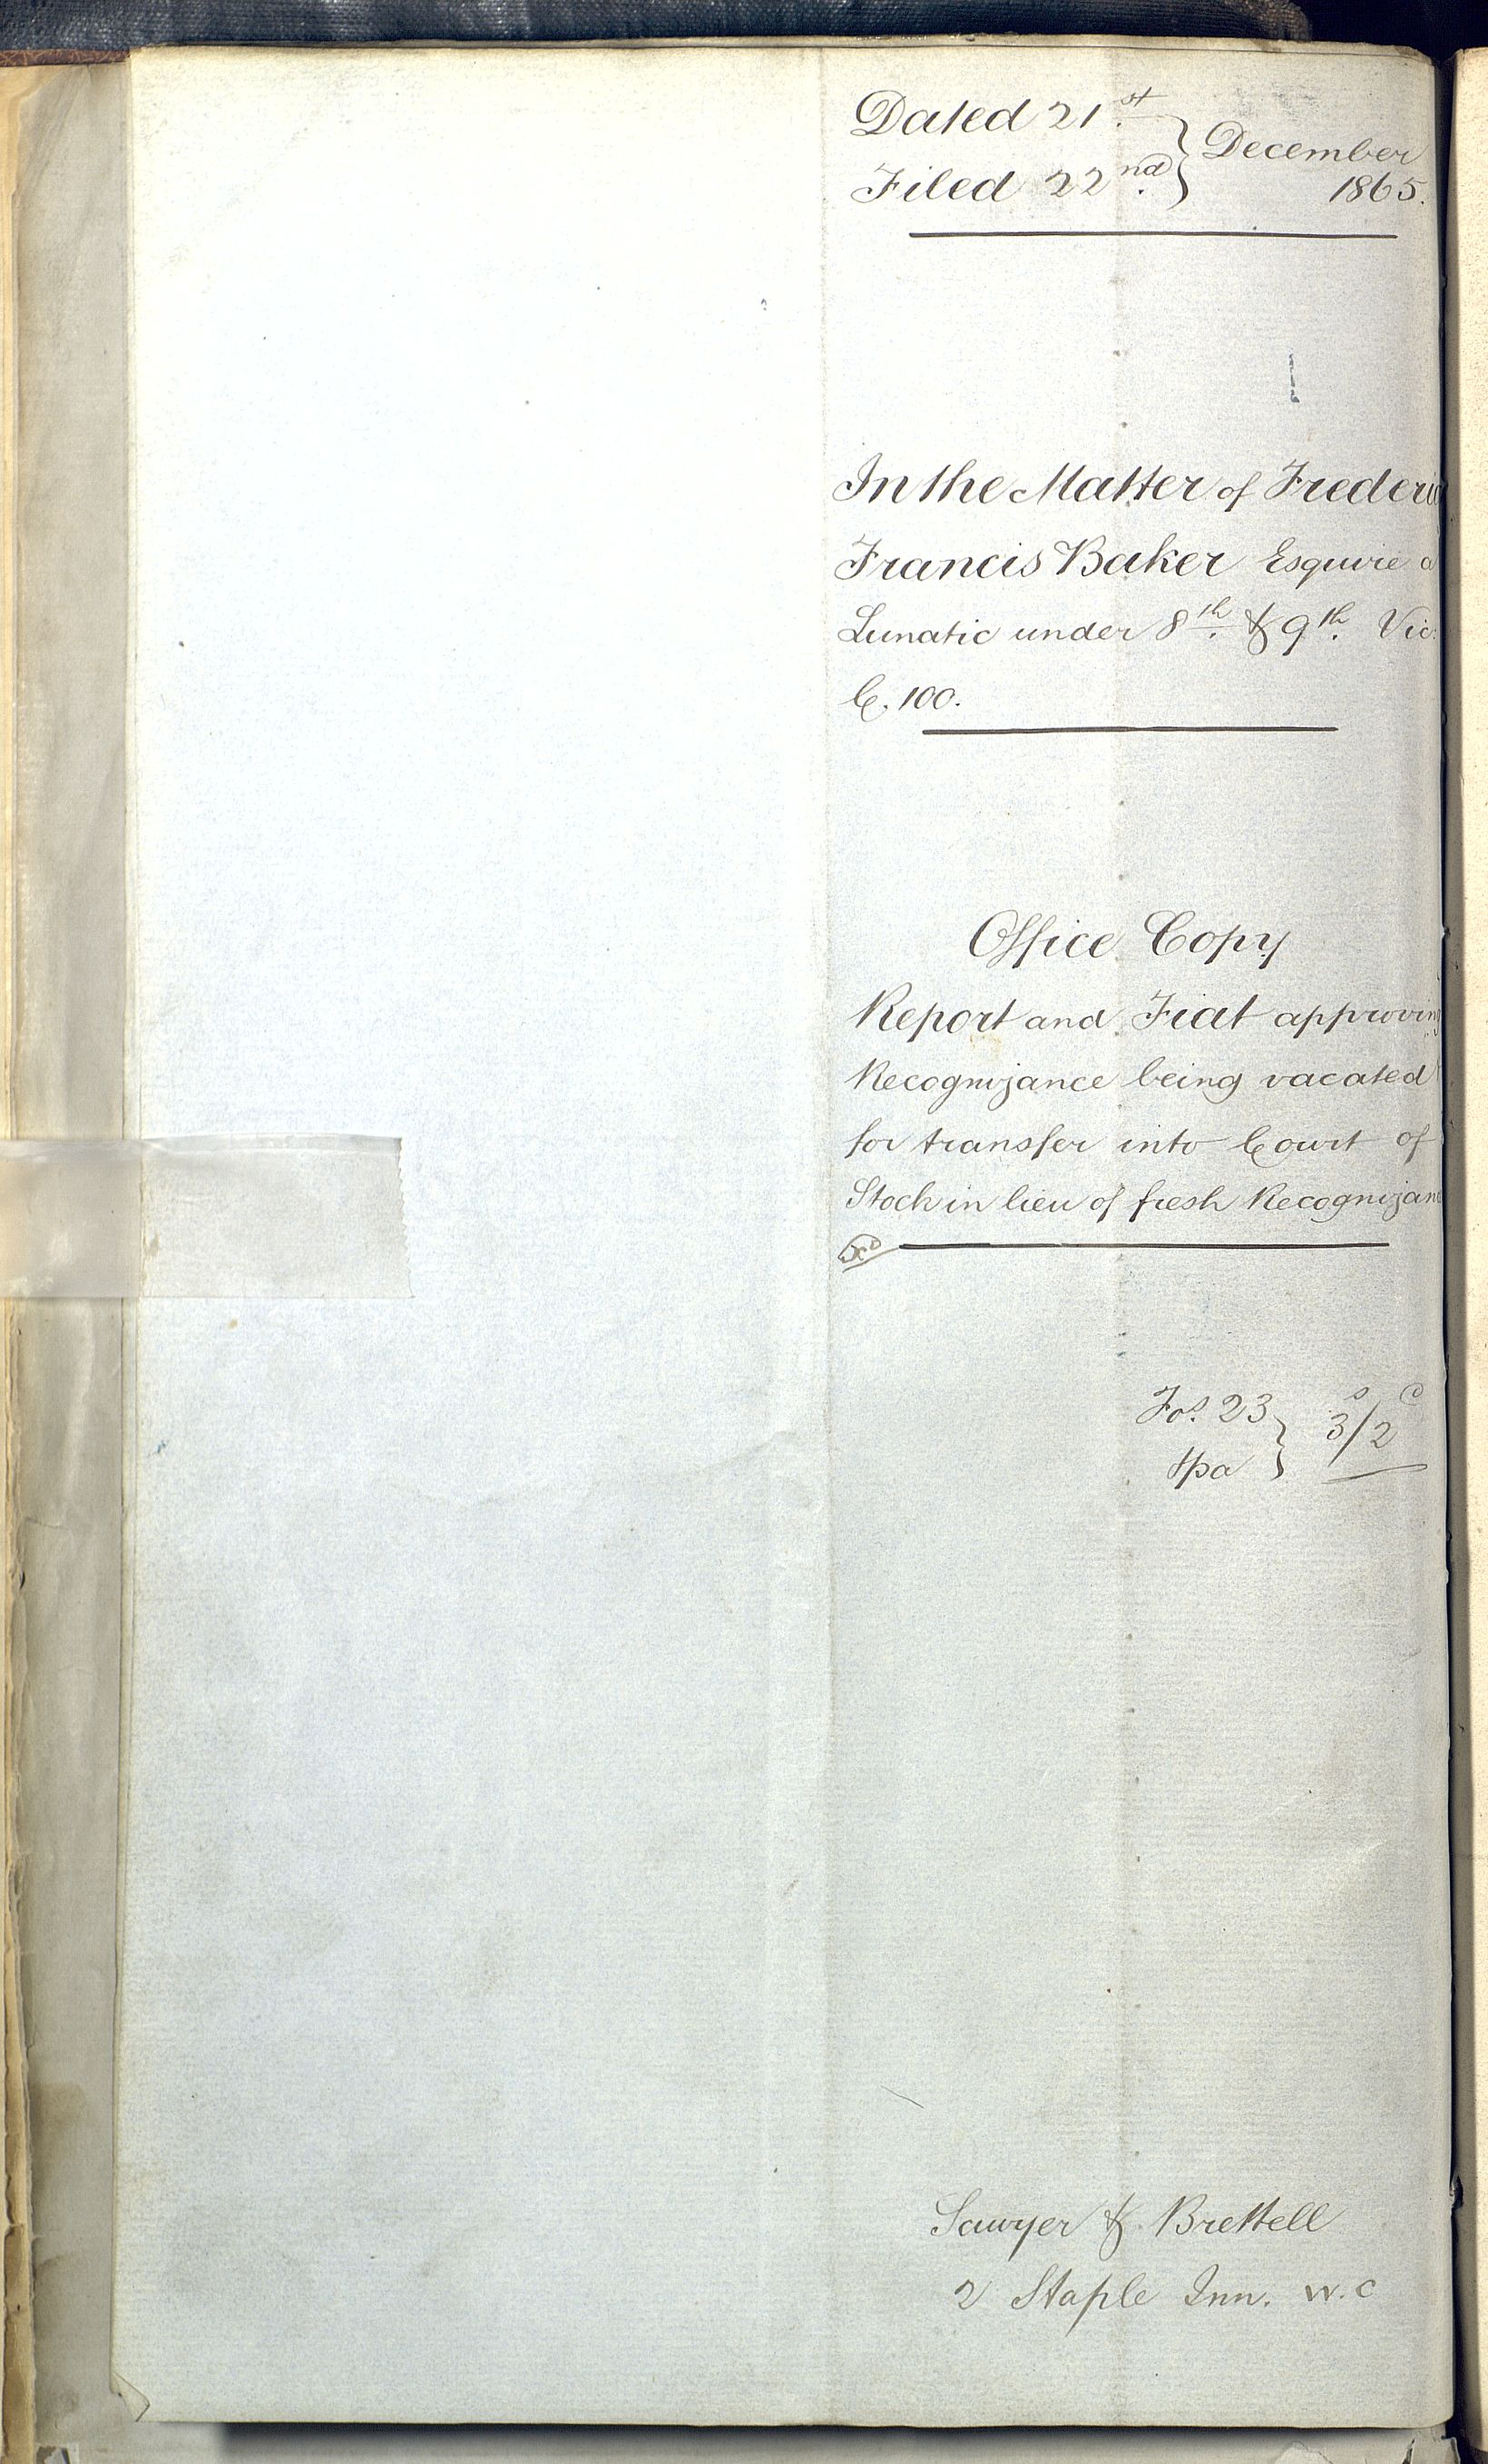 Dated 21st
Filed 22nd } December
1865.
In the Matter of Frederic
Francis Baker Esquire a
Lunatic under 8th & 9th Vic:
C. 100.
Office Copy
Report and Fiat approving
Recognizance being vacated
for transfer into Court of
Stock in lieu of fresh Recognizanc
Fos. 23 } s d
3/2
Sawyer & Brettell
2 Staple Inn. W.C